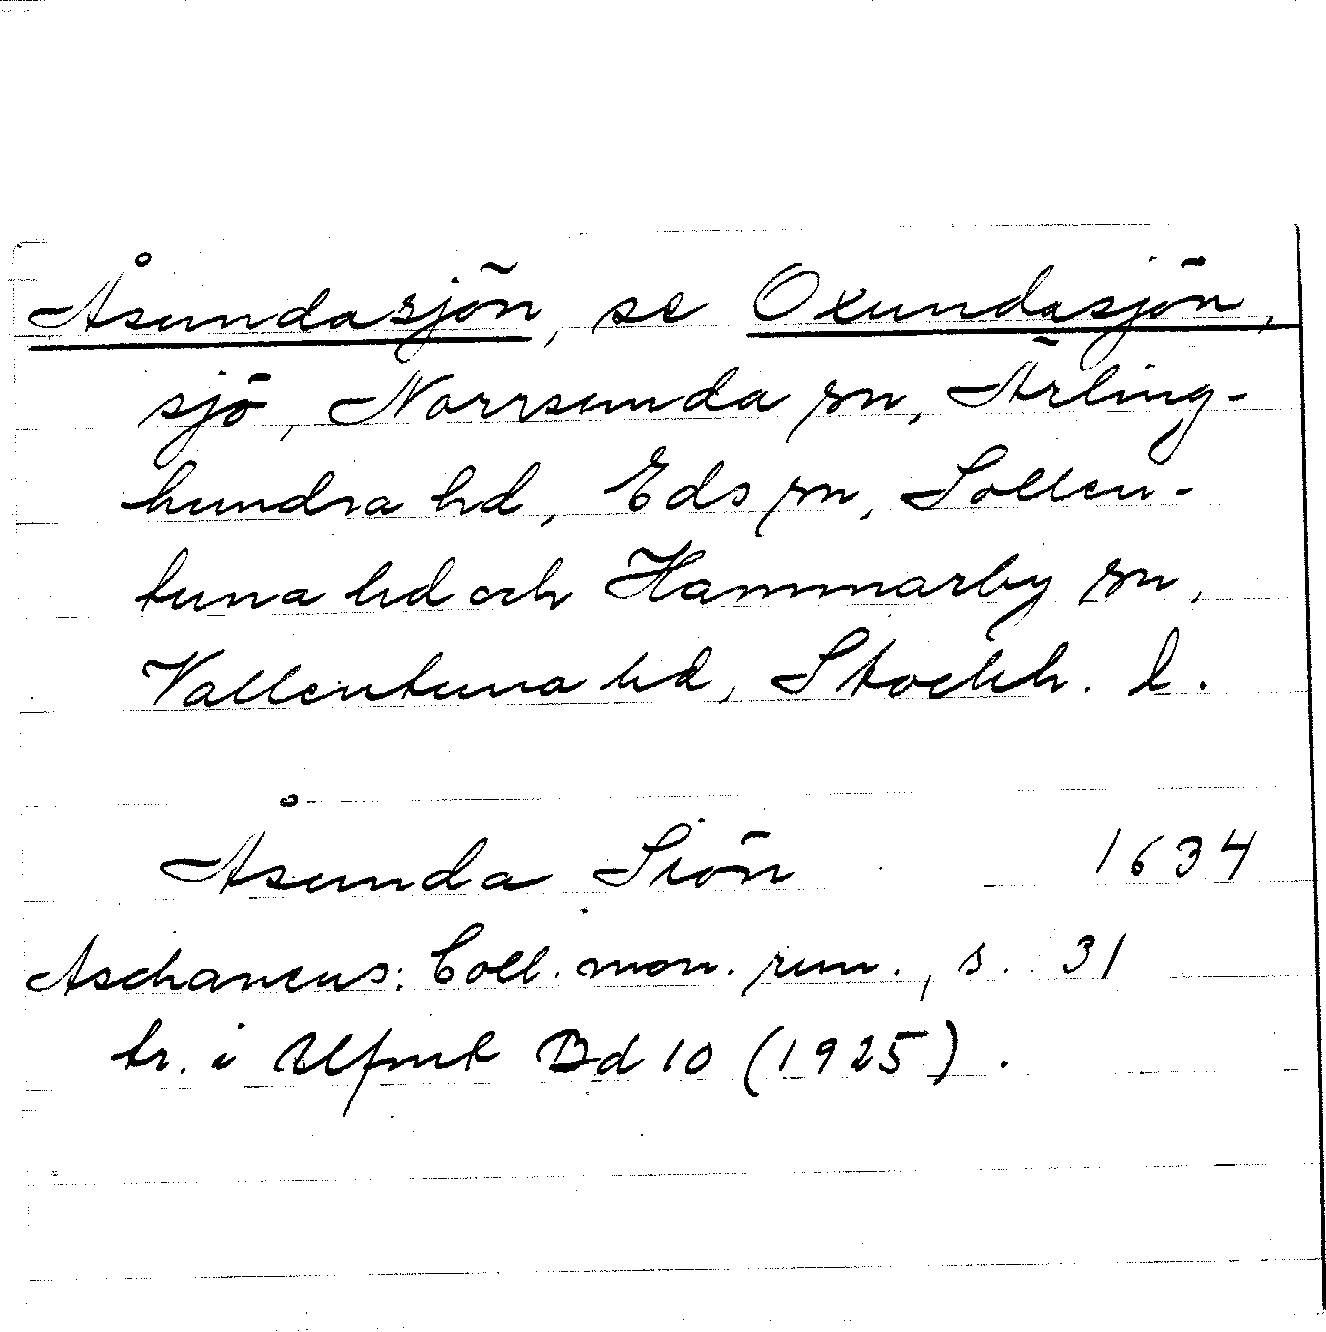 Åsundasjön, se Oxundasjön,
sjö, Norrsunda sn, Ärling-
hundra hd, Eds sn, Sollen-
tuna hd och Hammarby sn,
Vallentuna hd, Stockh. l.
Åsunda Siön 1634
Aschaneus: Coll. mon. run., s. 31
tr. i Ulfmt Bd 10 (1925).